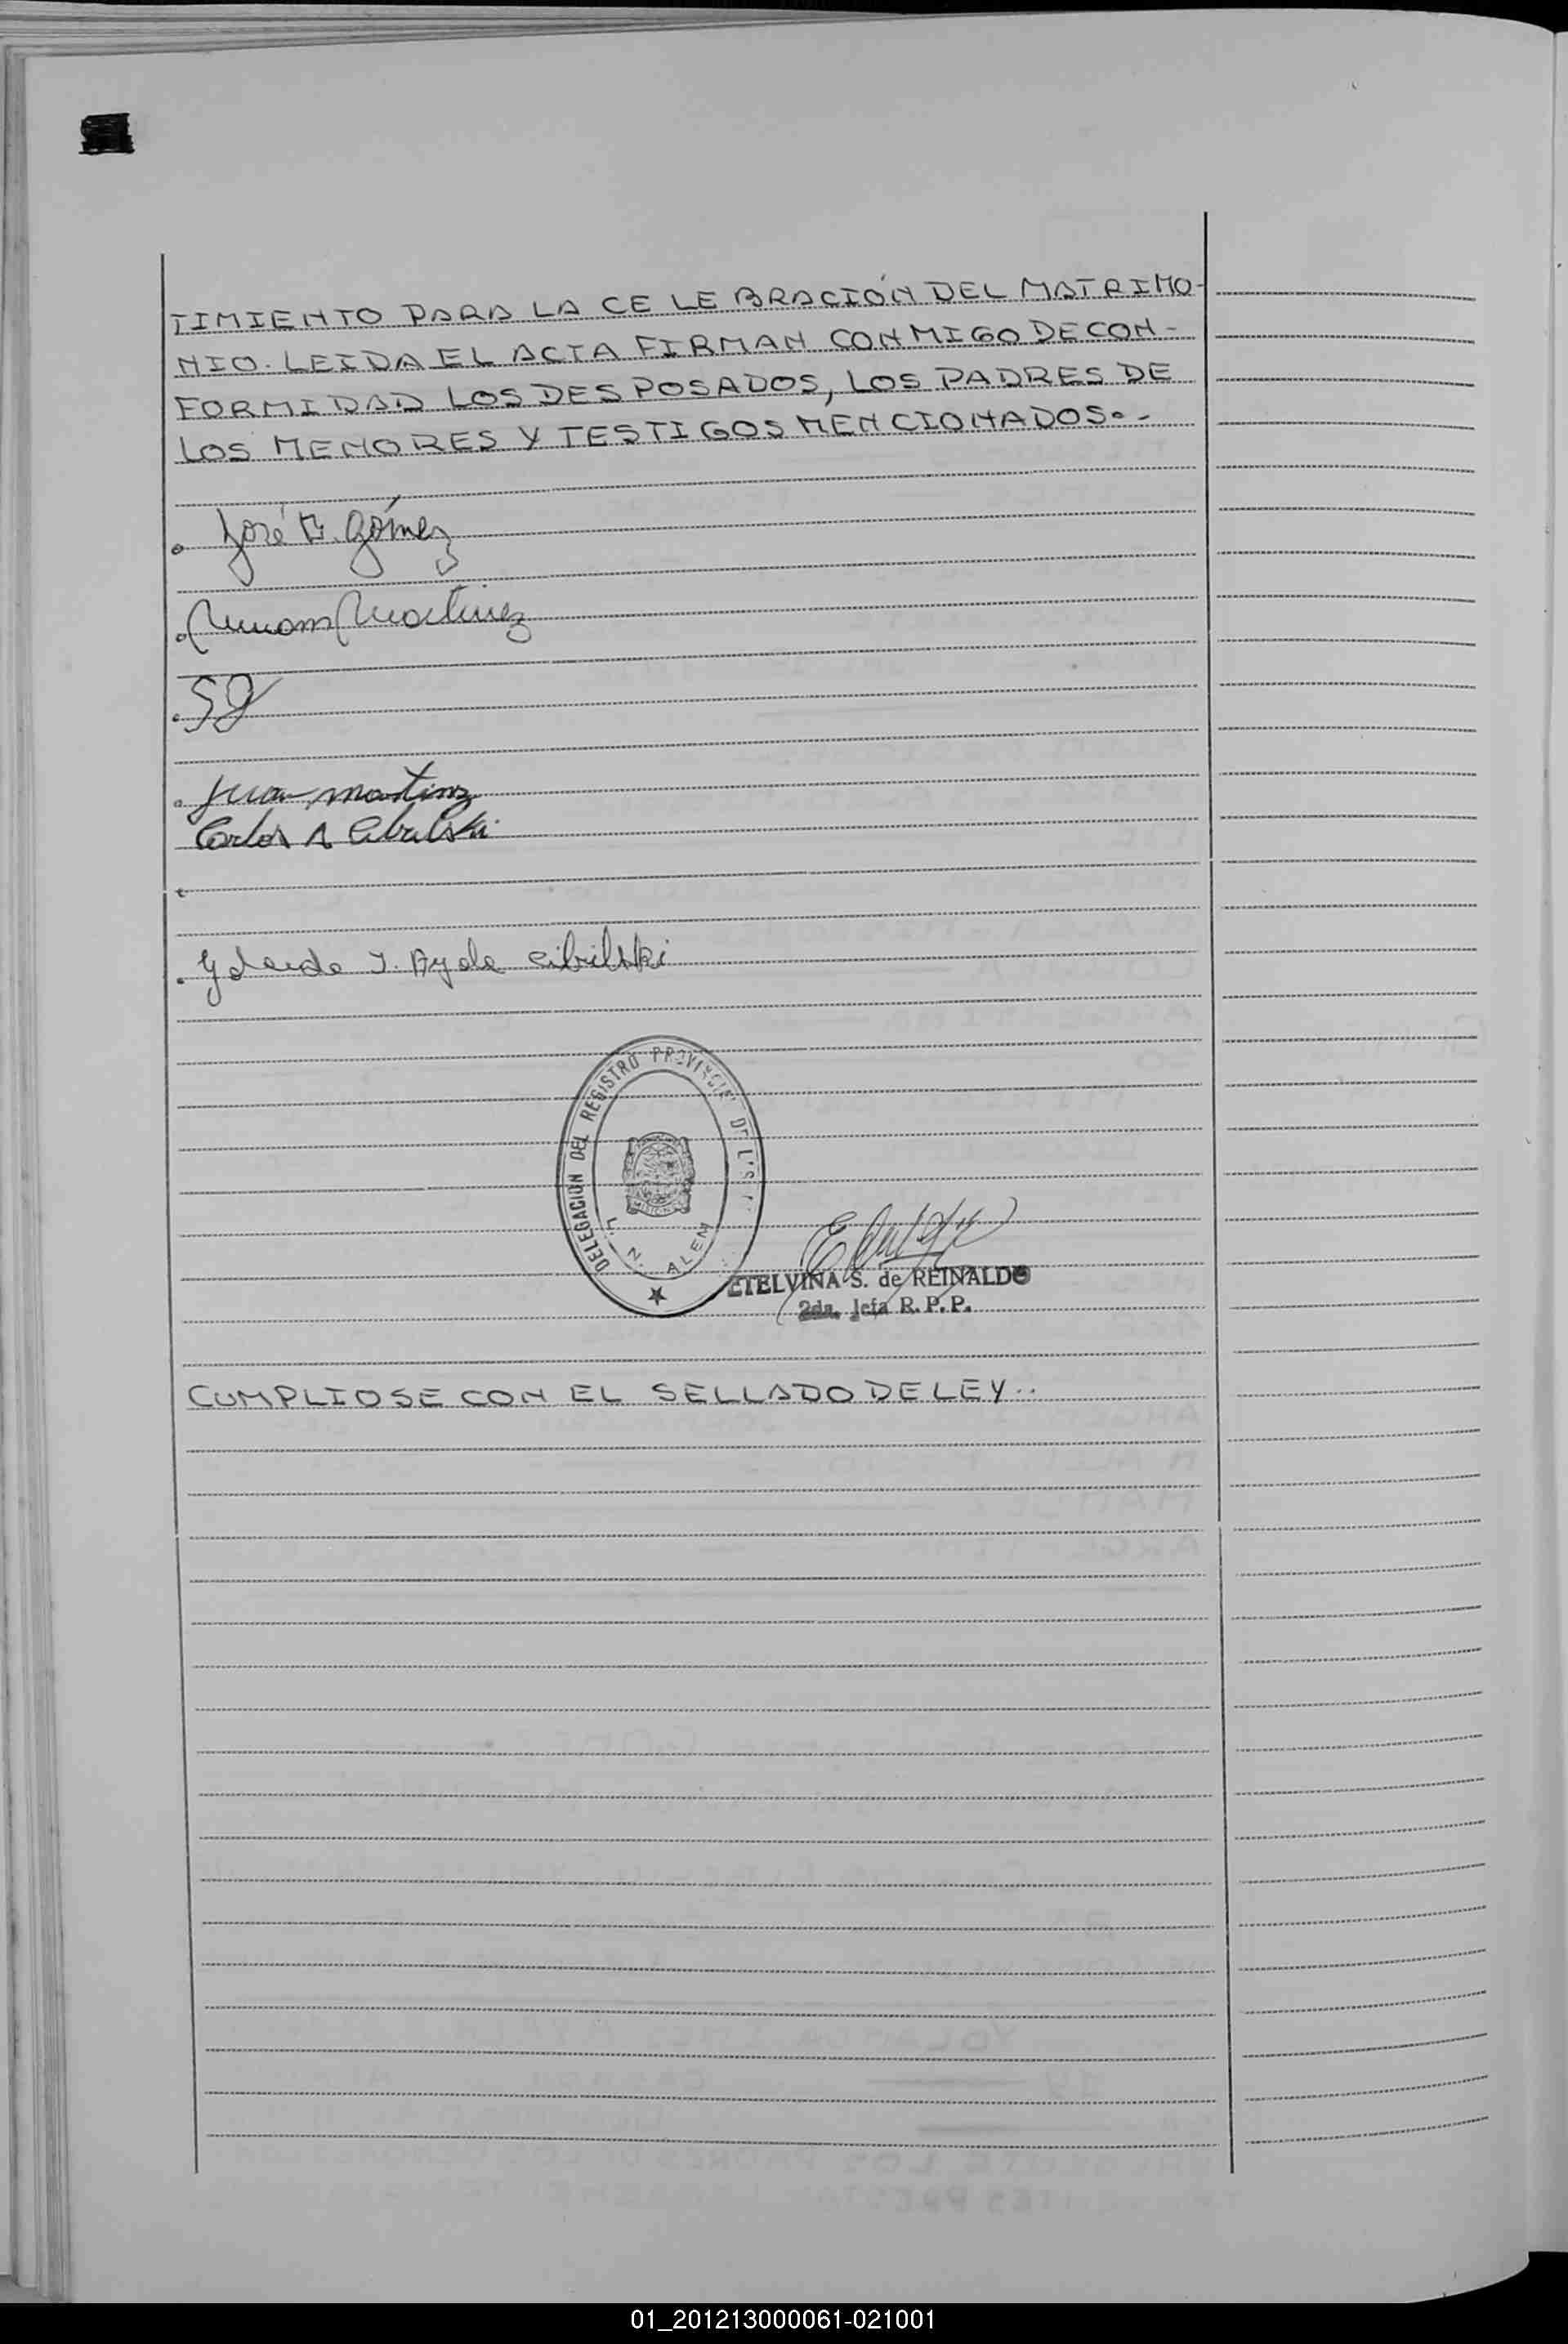 TIMIENTO PARA LA CELEBRACIÓN DEL MATRIMO-
NIO. LEIDA EL ACTA FIRMAN CONMIGO DE CON-
FORMIDAD LOS DESPOSADOS, LOS PADRES DE
LOS MENORES Y TESTIGOS MENCIONADOS.-
José E. Gómez
Miriam Martinez
Juan Martinz
Carlos A Cibulski
Yolanda I. Ayala Cibilski
DELEGACION DEL REGISTRO PROVINCIAL DE LAS
MISIONES
L. N. ALEM
ETELVINA S. de REINALDO
2da. Jefa R. P. P.
CUMPLIOSE CON EL SELLADO DE LEY..
01_201213000061-021001